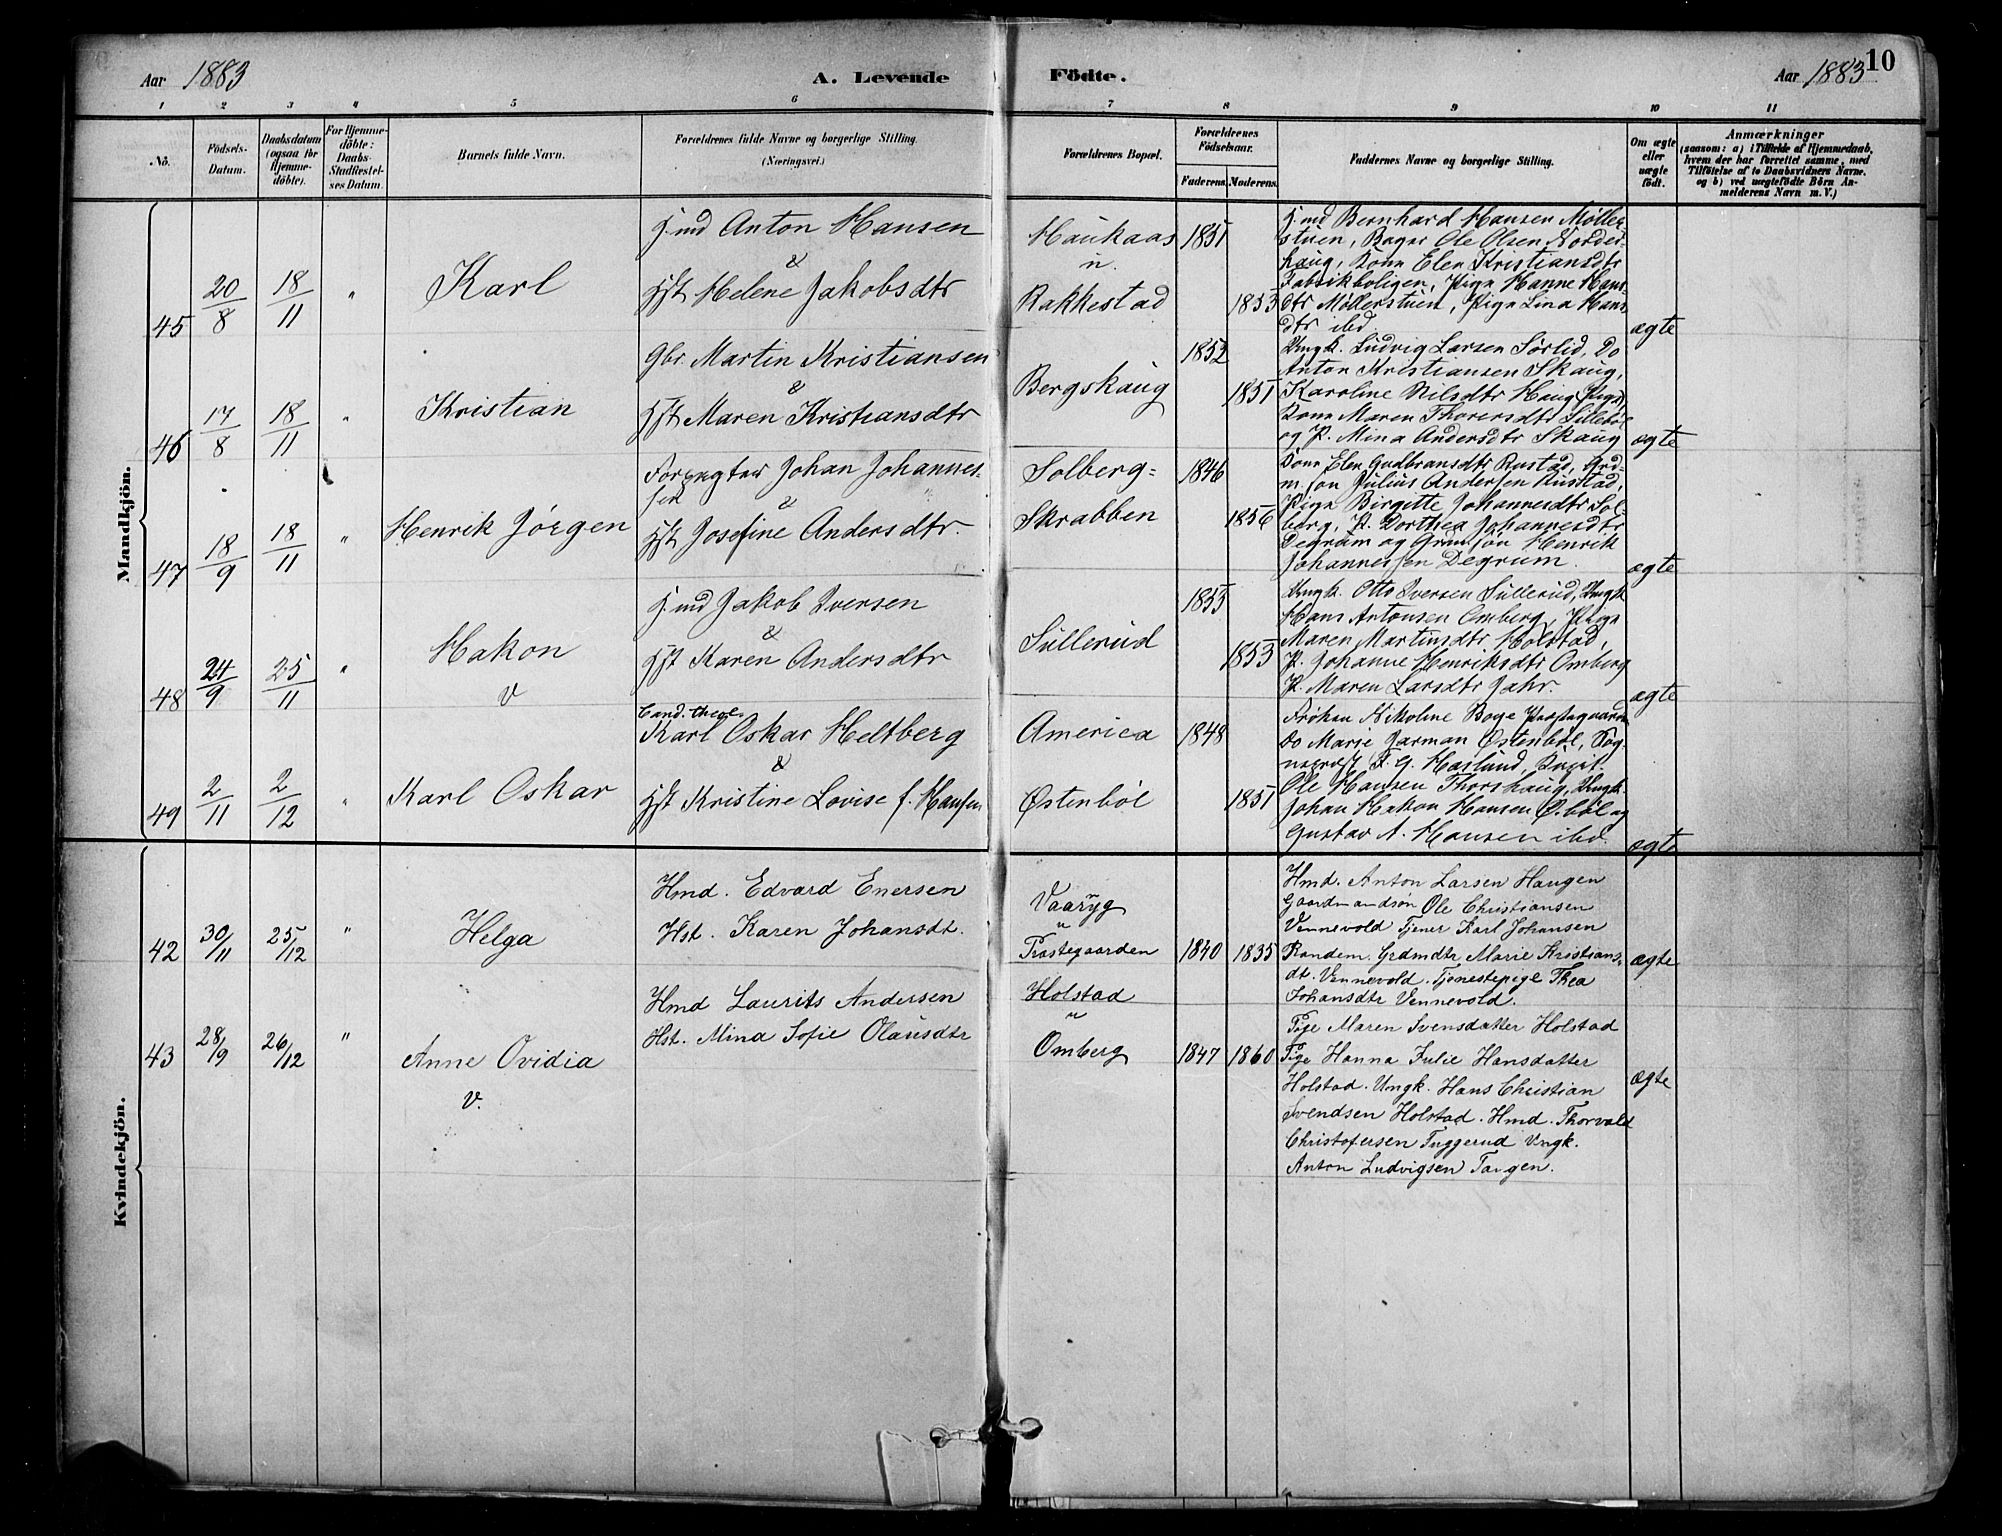 Aar 1883
A. Levende
Födte.
Aar 1883
10
1 2 3 4 5 6 7 8 9 10 11
No.
Födsels-
Datum.
Daabsdatum
(ogsaa for
Hjemme-
döbte).
For Hjemme-
döbte:
Daabs-
Stadfæstel-
ses Datum.
Barnets fulde Navn.
Forældrenes fulde Navne og borgerlige Stilling.
(Næringsvei.)
Forældrenes Bopæl.
Forældrenes
Födselsaar.
Faderens. Moderens.
Faddernes Navne og borgerlige Stilling.
Om ægte
eller
uægte
födt.
Anmærkninger
(saasom: a) i Tilfælde af Hjemmedaab,
hvem der har forrettet samme, med
Tilföielse af to Daabsvidners Navne.
og b) ved uægtefödte Börn An-
melderens Navn m.V.)
Mandkjön.
45
20/8
18/11
"
Karl
Anton Hansen
&
Helene Jakobsdtr
Haukaas
u.
Rakkestad
1851
1853
Bernhard Hansen Møller-
stuen, Bager Ole Olsen Norder-
haug, Kone Elen Kristiansdtr
Fabrikboligen, Pige Hanne Hans-
dtr Møllerstuen, Pige Lina Hans
dtr ibd.
ægte
46
17/8
18/11
"
Kristian
Gbr. Martin Kristiansen
&
Hst Maren Kristiansdtr
Bergskaug
1852
1851
Ungk. Ludvig Larsen Sørlid, Do
Anton Kristiansen Skaug,
Karoline Nilsdtr Haug
Kone Maren Thorersdtr Sillebøl
og P. Mina Andersdtr Skaug
ægte
47
18/9
18/11
"
Henrik Jørgen
Forpagter Johan Johannes-
sen
&
Hst Josefine Andersdtr.
Solberg-
Skrabben
1846
1856
Kone Elen Gudbransdtr Rustad, Grd-
m. søn Julius Andersen Rustad,
Pige Birgitte Johannesdtr Sol-
berg, P. Dorthea Johannesdtr
Degrum og Grm. søn Henrik
Johannessen Degrum.
ægte
48
24/9
25/11
"
Hakon
v
Jakob Iversen
&
Hst Karen Andersdtr
Sullerud
1853
1853
Ungk. Otto Iversen Sullerud, Ungk
Hans Antonsen Omberg, Pige
Maren Martinsdtr Holstad,
P. Johanne Henriksdtr Omberg
P. Maren Larsdtr Jahr.
ægte
49
2/11
2/12
"
Karl Oskar
Cand. theol.
Karl Oskar Heltberg
&
Hst Kristine Lovise f. Hansen
America
Østenbøl
1848
1851
Frøken Nikoline Boye Præstegaarden
Do Marie Jarman Østenbøl, Sog-
nepræst F. G. Haslund,
Ole Hansen Thorshaug, Ungk.
Johan Hakon Hansen Ø.bøl og
Gustav A. Hansen ibd.
ægte
Kvindekjön.
42
30/11
25/12
"
Helga
Hmd. Edvard Enersen
Hst. Karen Johansdt.
Vaaryg
u
Præstegaarden
1840
1835
Hmd. Anton Larsen Haugen
Gaardmandsøn Ole Christiansen
Vennevold Tjener Karl Johansen
Randem. Grdmdtr Marie Kristians-
dt. Vennevold. Tjenestepige Thea
Johansdtr Vennevold.
ægte
43
28/9
26/12
"
Anne Ovidia
v.
Hmd Laurits Andersen
Hst. Mina Sofie Olausdtr
Holstad
u
Omberg
1847
1860
Pige Maren Svensdatter Holstad
Pige Hanna Julie Hansdatter
Holstad. Ungk. Hans Christian
Svendsen Holstad. Hmd. Thorvald
Christofersen Tuggerud Ungk.
Anton Ludvigsen Tangen.
ægte